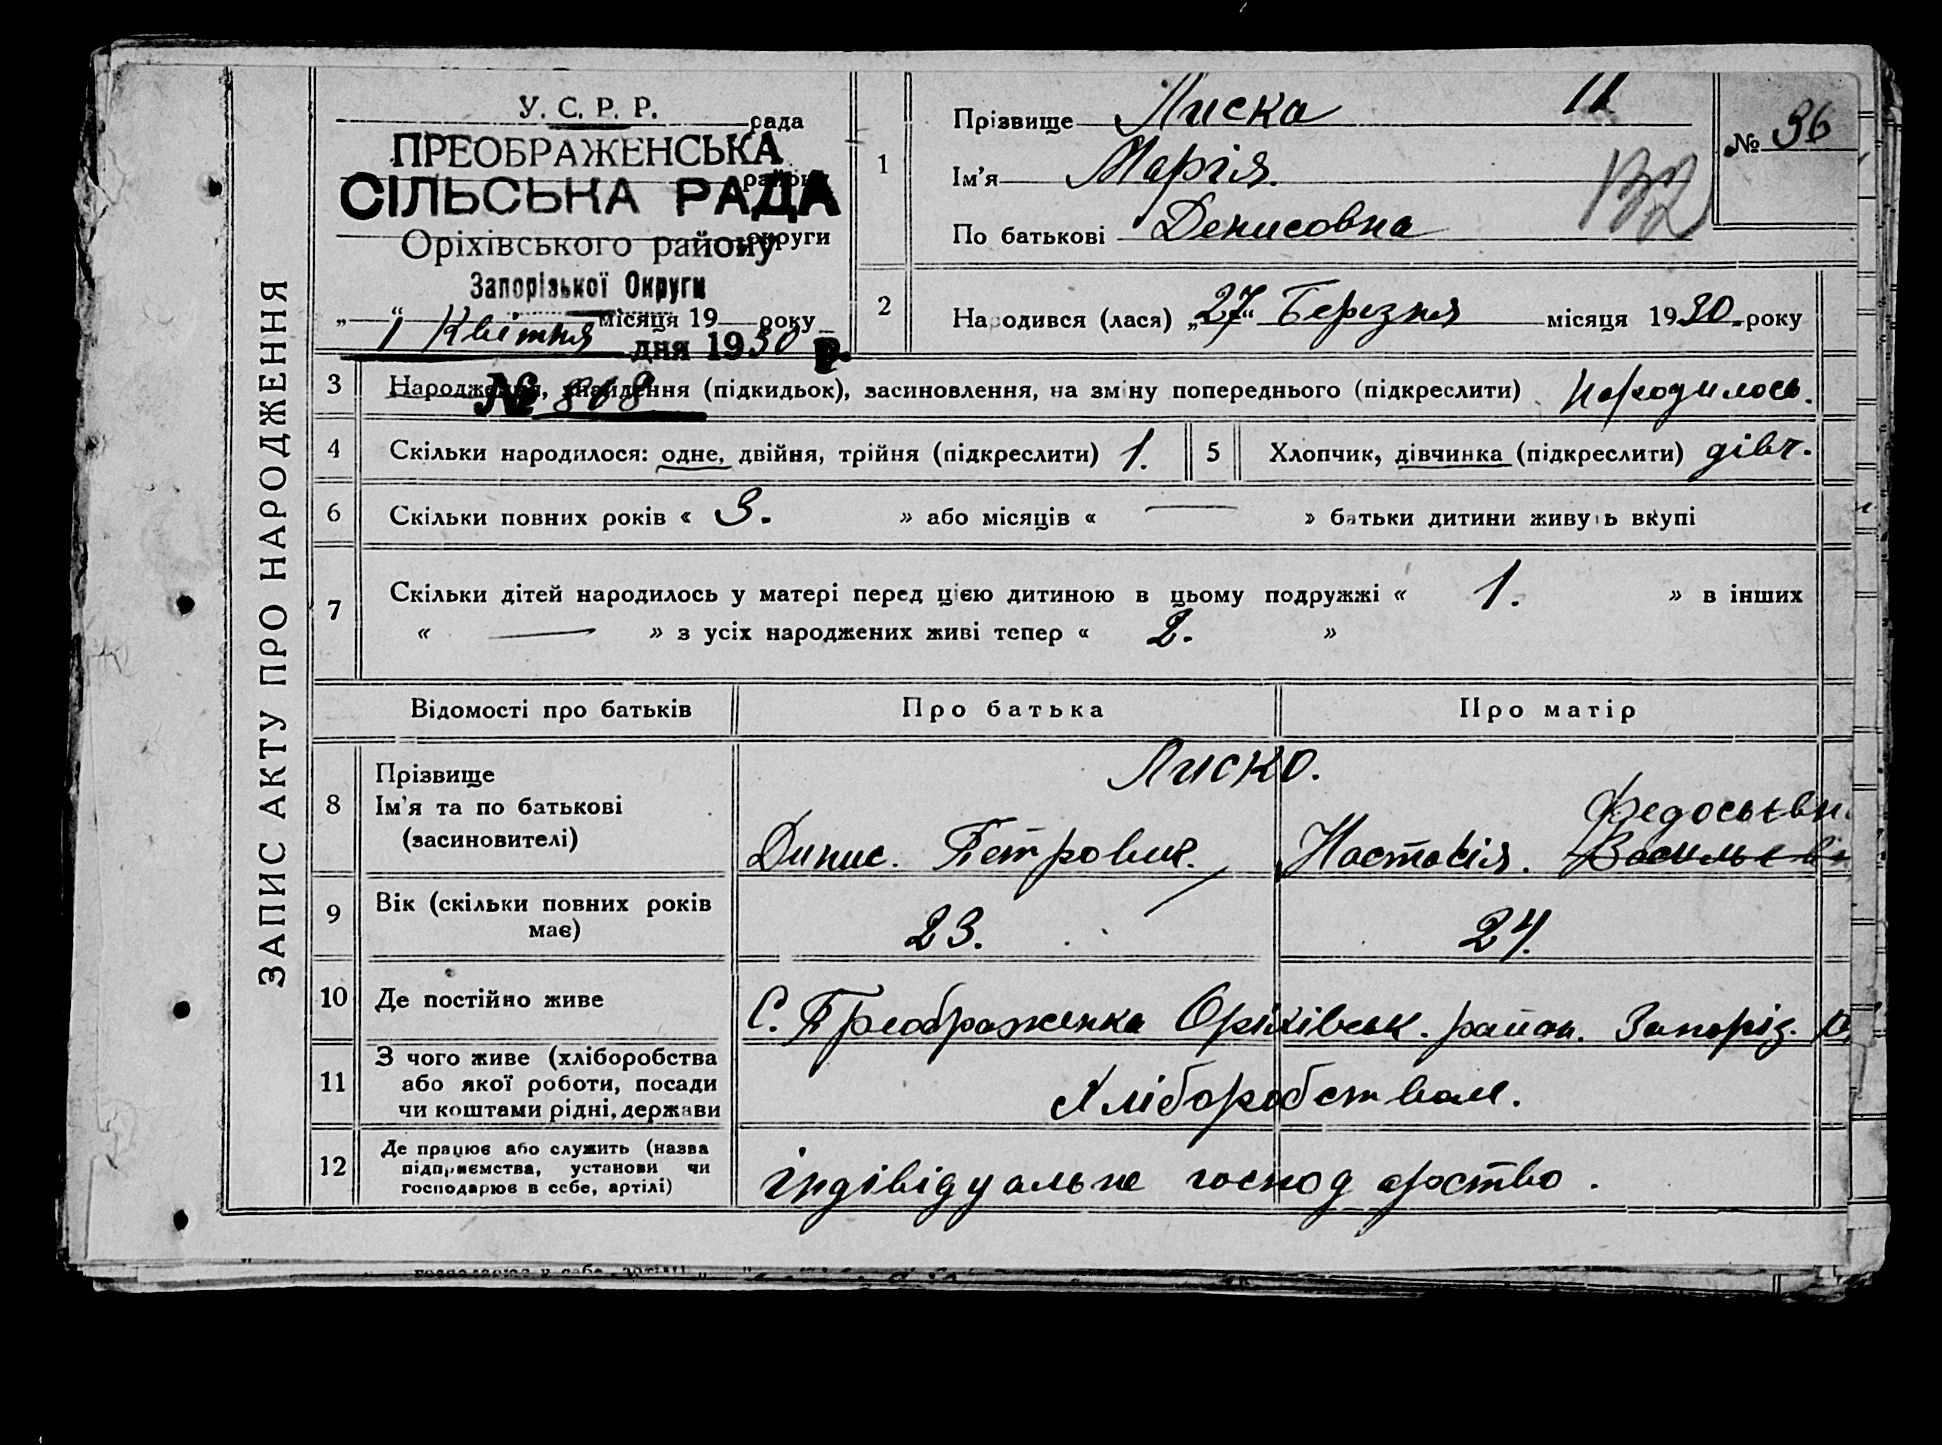 ЗАПИС АКТУ ПРО НАРОДЖЕННЯ
У. С. Р. Р.
рада
ПРЕОБРАЖЕНСЬКА
району
СІЛЬСЬКА РАДА
округи
Оріхівського району
Запорізької Округи
„ 1 “ Квітня місяця 19 року
дня 1930 р.
№ 868
1
Прізвище Лиска 11
Ім’я Марія.
По батькові Денисовна
№ 36
132
2 Народився (лася) „27“ Березня місяця 1930. року
3 Народження, знайдення (підкидьок), засиновлення, на зміну попереднього (підкреслити) народилось.
4 Скільки народилося: одне, двійня, трійня (підкреслити) 1. 5 Хлопчик, дівчинка (підкреслити) дівч.
6 Скільки повних років « 3. » або місяців « — » батьки дитини живуть вкупі
7 Скільки дітей народилось у матері перед цією дитиною в цьому подружжі « 1. » в інших
« — » з усіх народжених живі тепер « 2. »
Відомості про батьків Про батька Про матір
8 Прізвище
Ім’я та по батькові
(засиновителі)
Лиско.
Федосьевн
Динис. Петрович. Настасія. Васильевн
9 Вік (скільки повних років має) 23. 24.
10 Де постійно живе С. Преображенка Оріхівськ. район. Запоріз.
11 З чого живе (хліборобства
або якої роботи, посади
чи коштами рідні, держави
Хліборобством.
12 Де працює або служить (назва
підприємства, установи чи
господарює в себе, артілі)
індівідуальне господарство.